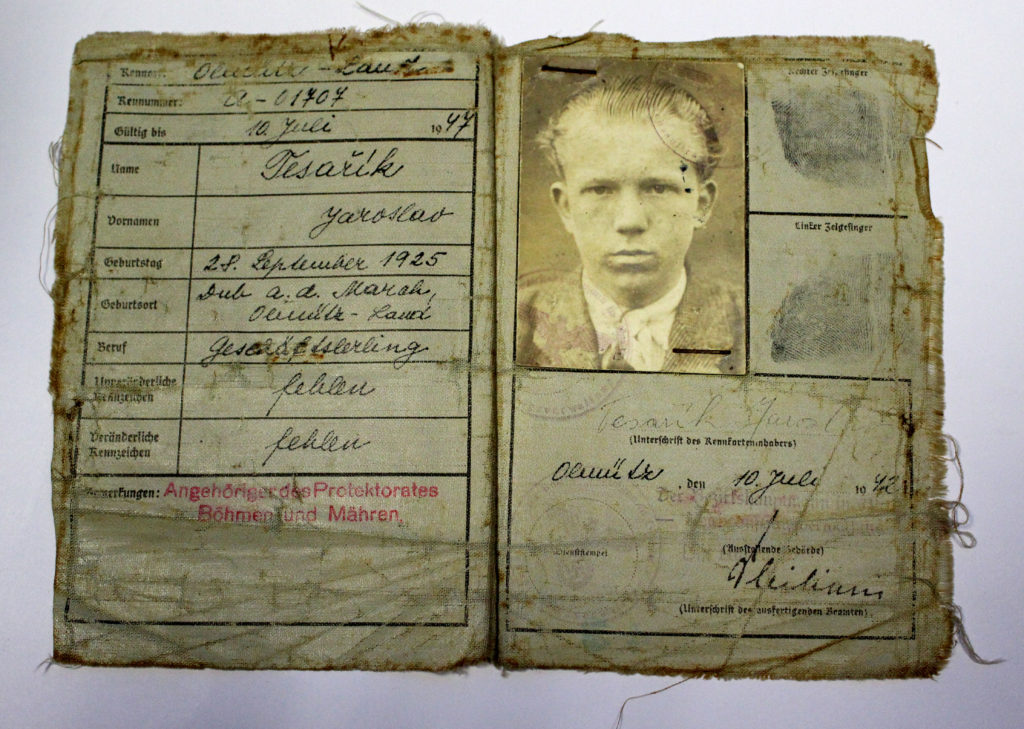 Kennort: Olmütz - Land
Kennummer: A - 01707
Gültig bis 10. Juli 1947
Name Tesařík
Vornamen Jaroslav
Geburtstag 28. September 1925
Geburtsort Dub a. d. March,
Olmütz - Land
Beruf Geschäftslerling
Unveränderliche Kennzeichen fehlen
Veränderliche Kennzeichen fehlen
Bemerkungen: Angehöriger des Protektorates
Böhmen und Mähren.
Rechter Zeigefinger
Linker Zeigefinger
Tesařík Jaroslav
(Unterschrift des Kennkarteninhabers)
Olmütz, den 10. Juli 1942
Der Bezirkshauptmann
Dienststempel
(Ausstellende Behörde)
(Unterschrift des ausfertigenden Beamten)